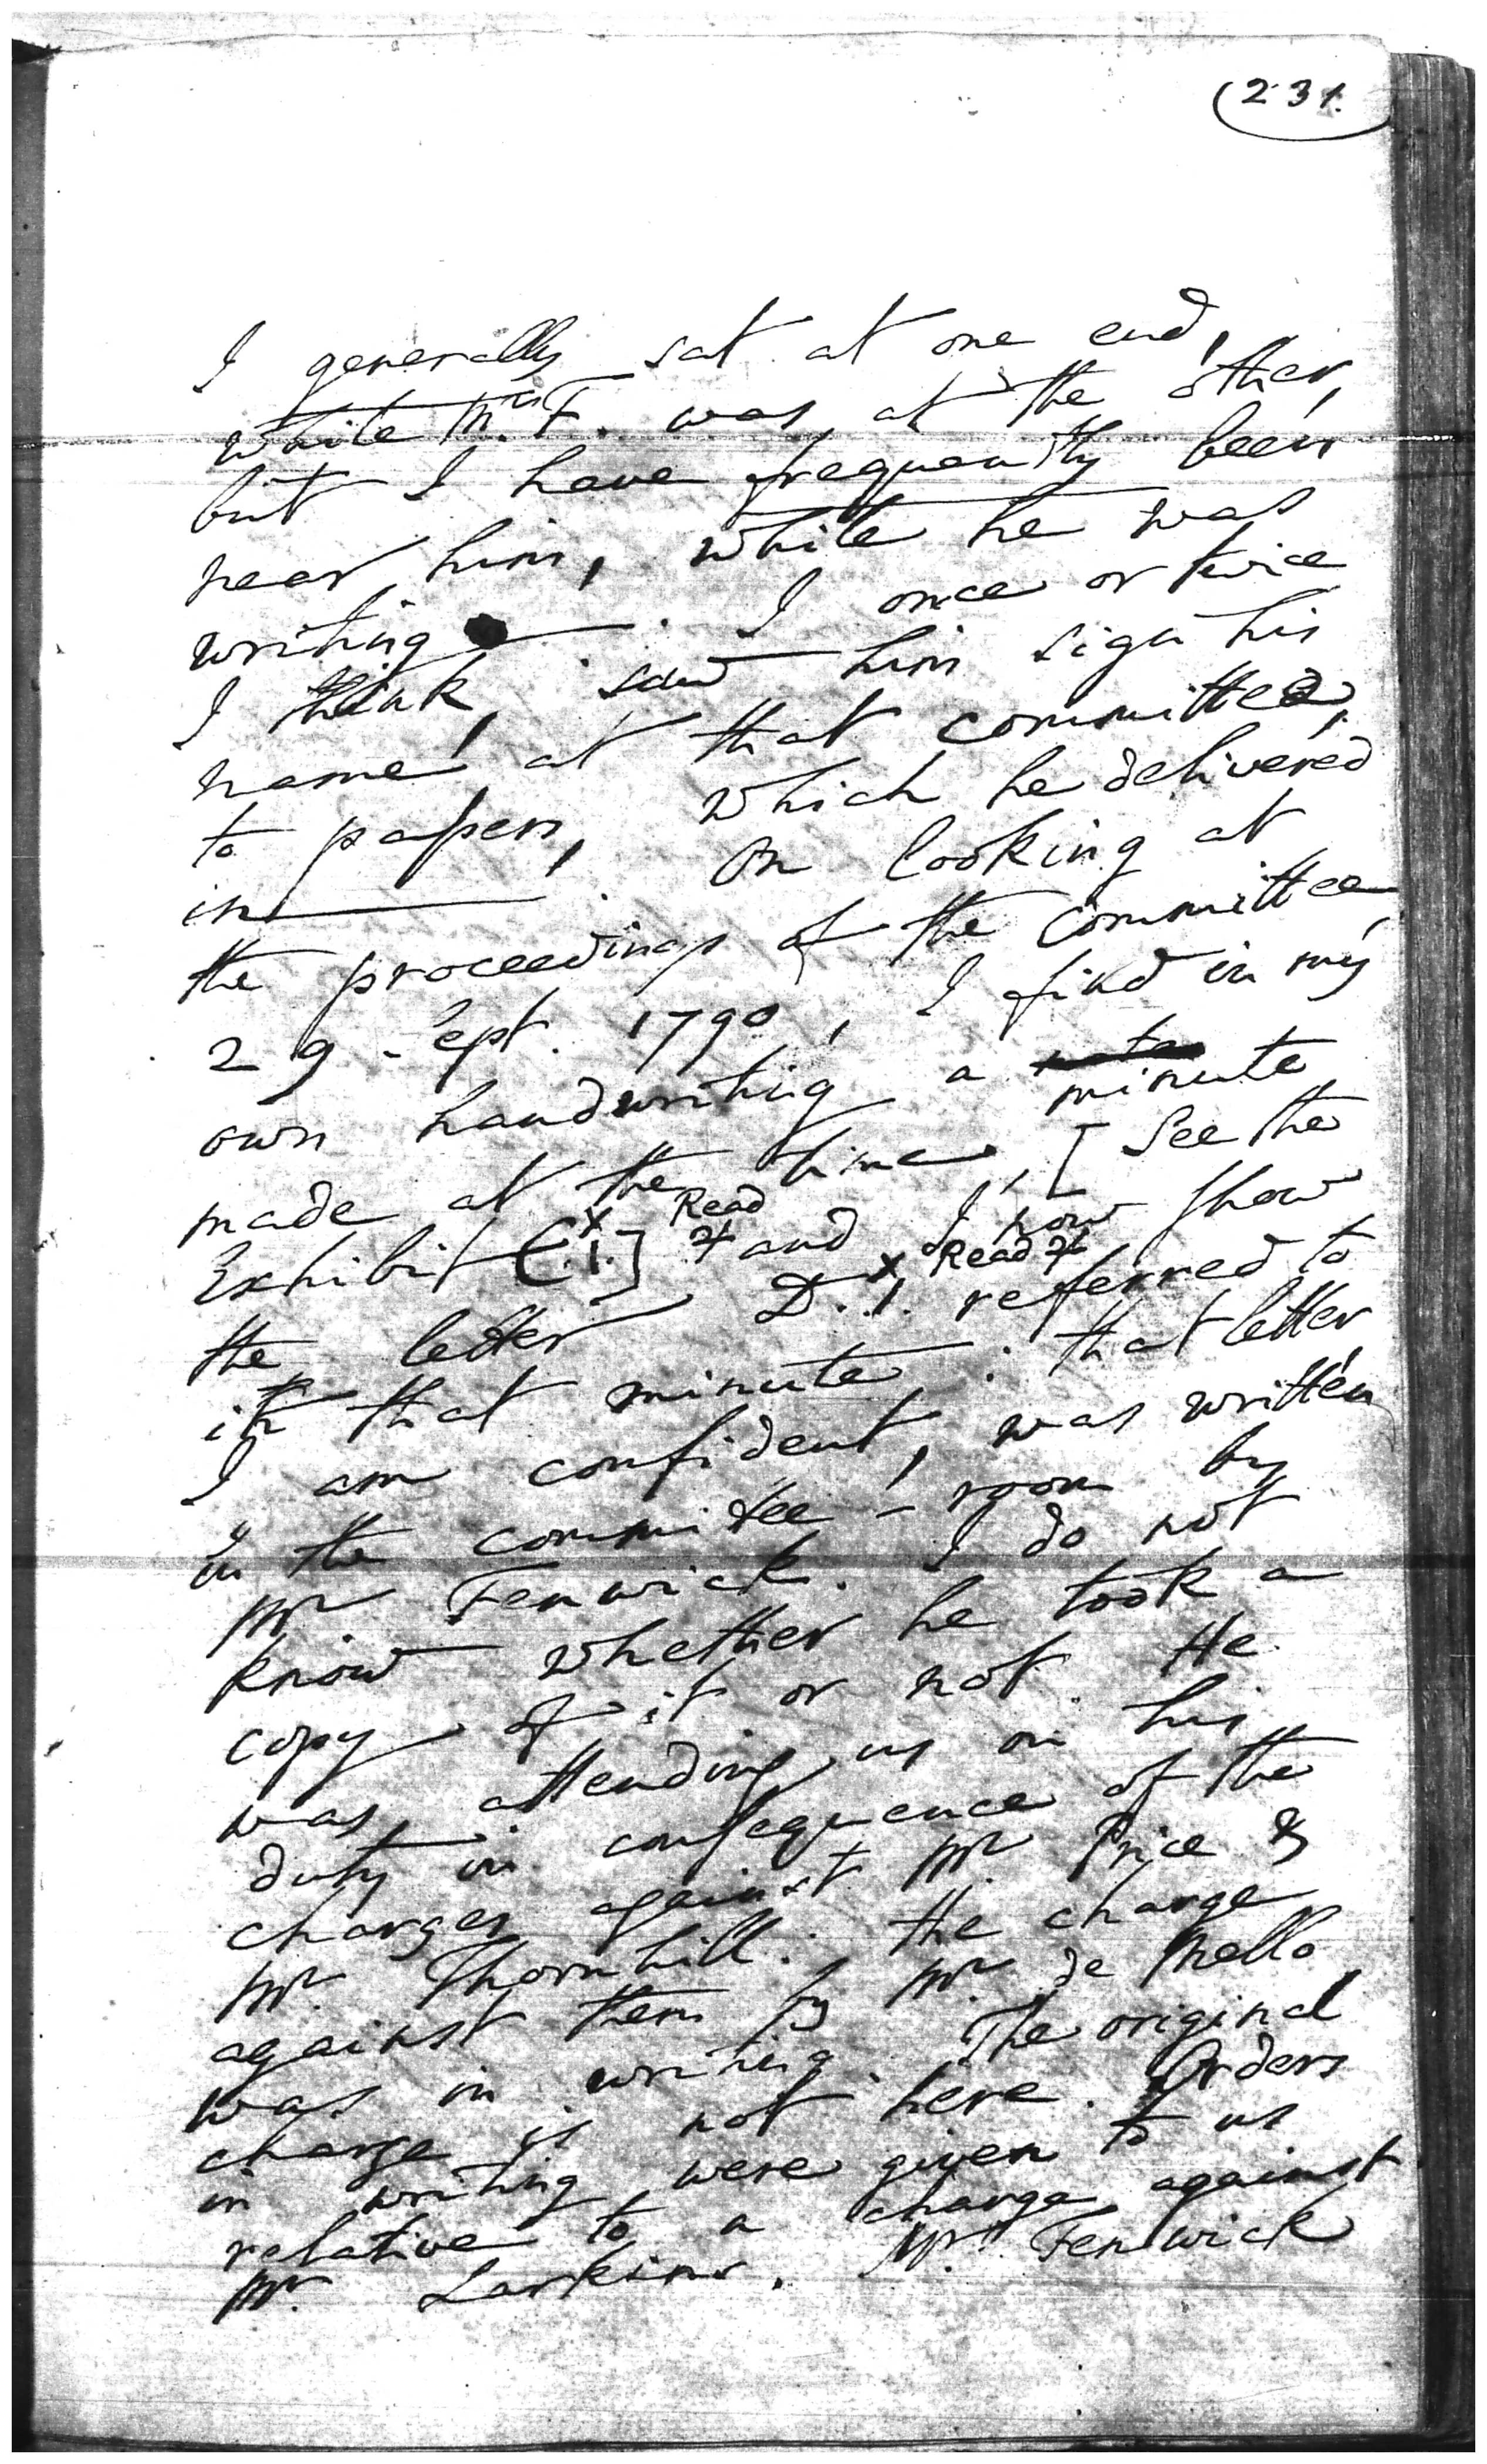 (231.
I generally sat at one end,
while Mr. F. was, at the other,
but I have frequently been
near him, while he was
writing. I once or twice
I think, saw him sign his
name, at that committee,
to papers, which he delivered
in. On looking at
the proceedings of the committee,
29 Sept. 1790, I find in my
own handwriting a minute
made at the time, [See the
Read
Exhibit [.1.] and I now shew
X Read
the letter D.1. referred to
in that minute: that letter
I am confident, was written
in the committee-room by
Mr Fenwick. I do not
know whether he took a
copy of it or not. He
was attending us on his
duty in consequence of the
charges against Mr. Price &
Mr. Thornhill: the charge
against them by Mr. de Mello
was in writing. The original
charge is not here. Orders
in writing were given to us
relative to a charge against
Mr. Larkins. Mr. Fenwick